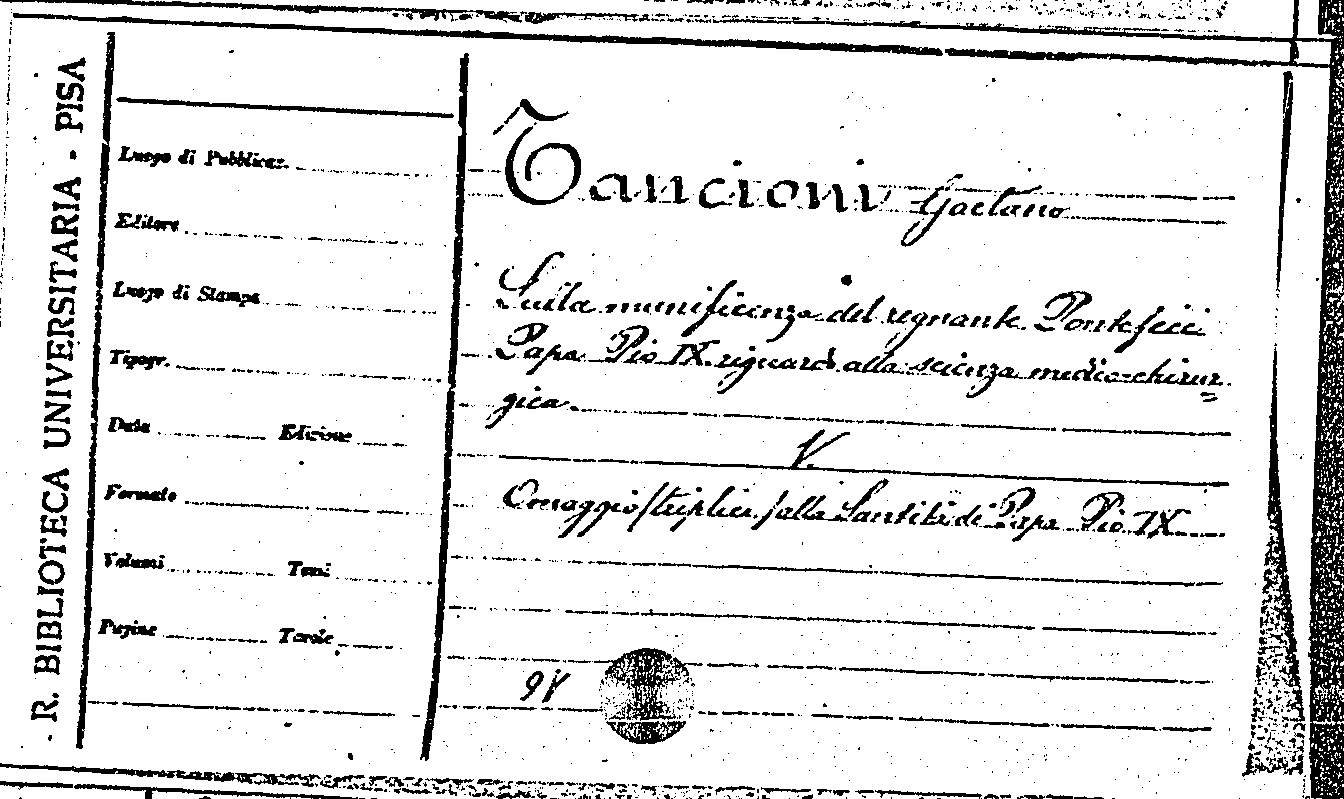 R. BIBLIOTECA UNIVERSITARIA - PISA
Luogo di Pubblicaz.
Editore
Luogo di Stampa
Tipogr.
Data Edizione
Formato
Volumi Tomi
Pagine Tavole
Tancioni Gaetano
Sulla munificenza del regnante Pontefice
Papa Pio IX riguardo alla scienza medico-chirur=
gica.
V.
Omaggio (triplice) alla Santità di Papa Pio IX